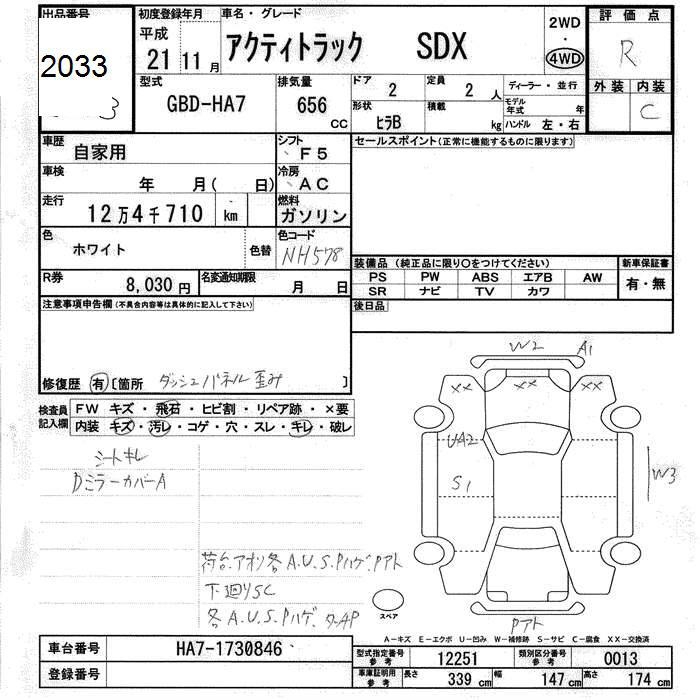 出品番号 初度登録年月 車名・グレード 2WD 評価点
2033 平成 21 11月 アクティトラック SDX 4WD R
3
型式 排気量 ドア 2 定員 2 人 ディーラー・並行 外装 内装
GBD-HA7 656 CC 形状 ヒラB 積載 kg モデル年式 年 ハンドル 左・右 C
車歴 自家用 シフト F5 セールスポイント(正常に機能するものに限ります)
車検 年 月( 日) 冷房 AC
走行 12万4千710 km 燃料 ガソリン
色 ホワイト 色替 色コード NH578
装備品 (純正品に限り〇をつけてください) 新車保証書
PS PW ABS エアB AW 有・無
SR ナビ TV カワ
R券 8,030円 名変通知期限 月 日
後日品
注意事項申告欄(不具合内容等は具体的に記入して下さい)
修復歴 有 〔箇所 ダッシュパネル歪み 〕
検査員記入欄 FW キズ・飛石・ヒビ割・リペア跡・×要
内装 キズ・汚レ・コゲ・穴・スレ・キレ・破レ
シートキレ
DミラーカバーA
W2 A1
XX XX XX
UA2
S1 W3
荷台.アオリ各A.U.S.Pハゲ.Pアト
下廻りSC
各A.U.S.Pハゲ.
スペア
Pアト
A-キズ E-エクボ U-凹み W-補修跡 S-サビ C-腐食 XX-交換済
車台番号 HA7-1730846
登録番号
型式指定番号 参考 12251 類別区分番号 参考 0013
車庫証明用 参考 長さ 339 cm 幅 147 cm 高さ 174 cm